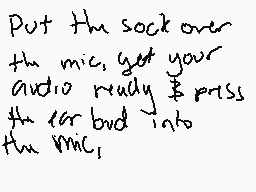 Put the sock over
the mic, get your
audio ready & press
the ear bud into
the mic,